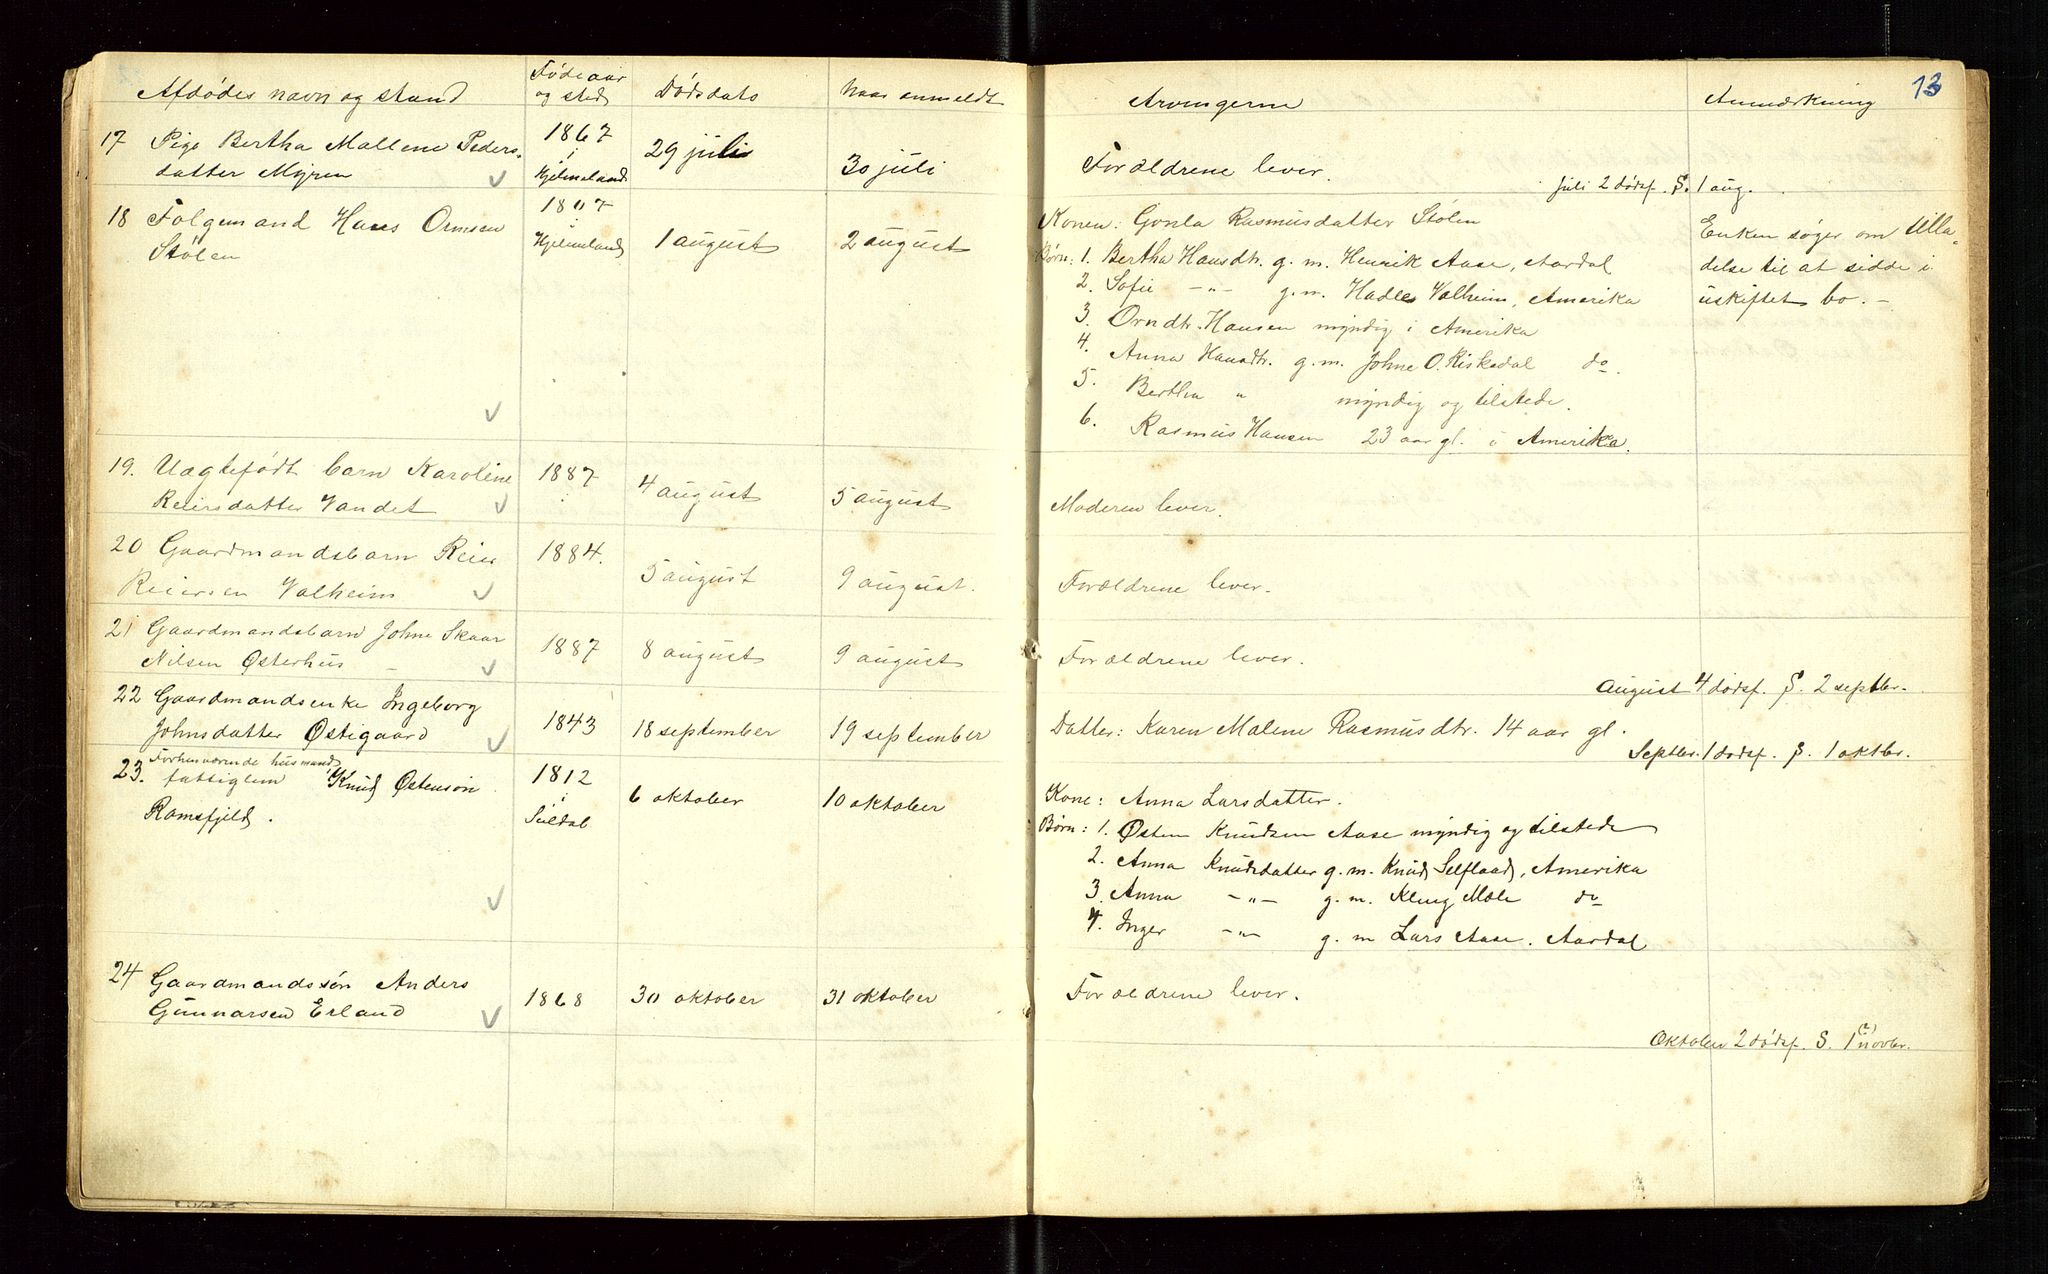 Afdødes navn og stand
Fødeaar
og sted
Dødsdato
Naar anmeldt
17 Pige Bertha Mallene Peders-
datter Myren
1867
Hjelmeland
29 juli
30 juli
18 Folgemand Hans Ormsen
Stølen
1807
Hjelmeland
1 august
2 august
19. Uægtefødt barn Karoline
Reiersdatter Vandet
1887
4 august
5 august
20 Gaardmandsbarn Reier
Reiersen Valheim
1884.
5 august
9 august.
21 Gaardmandsbarn Johne Skaar
Nilsen Østerhus
1887
8 august
9 august
22 Gaardmandsenke Ingeborg
Johnsdatter Østigaard
1843
18 september
19 september
Forhenværende husmand,
23. fattiglem Knud Østensøn
Ramsfjeld.
1812
Suldal
6 oktober
10 oktober
24 Gaardmandssøn Anders
Gunnarsen Erland
1868
30 oktober
31 oktober
13
Arvingerne
Anmærkning
Forældrene lever.
Juli 2 dødsf. S. 1 aug.
Konen: Gonla Rasmusdatter Stølen
Børn: 1. Bertha Hansdtr. g. m. Henrik Aase, Aardal
2. Sofie -"- g.m. Hadle Valheim, Amerika
3. Hansen myndig i Amerika
4. Anna Hansdtr. g. m. Johne O. Riskedal do.
5. Bertha " myndig og tilstede.
6. Rasmus Hansen 23 aar gl. i Amerika.
Enken søger om tilla-
delse til at sidde i
uskiftet bo. -
Moderen lever.
Forældrene lever.
Forældrene lever.
August 4 dødsf. S. 2 septbr.
Datter: Karen Malene Rasmusdtr. 14 aar gl.
Septbr. 1 dødsf. S. 1 oktbr.
Kone: Anna Larsdatter.
Børn: 1. Østen Knudsen Aase myndig og tilstede
2. Anna Knudsdatter g. m. Knud, Amerika
3. Anna -"- g. m. Kleng Mæle do
4. Inger -"- g. m Lars Aase. Aardal
Forældrene lever.
Oktober 2 dødsf. S. 1 novbr.